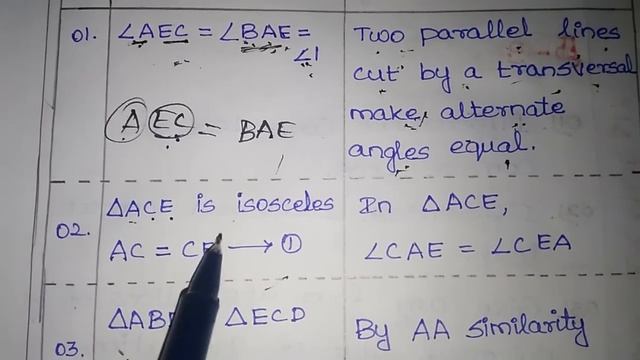 01. ∠AEC = ∠BAE = ∠1
AEC = BAE
Two parallel lines
cut by a transversal
make, alternate
angles equal.
02. ΔACE is isosceles
AC = C → ①
In ΔACE,
∠CAE = ∠CEA
03. ΔAB ΔECD
By AA similarity